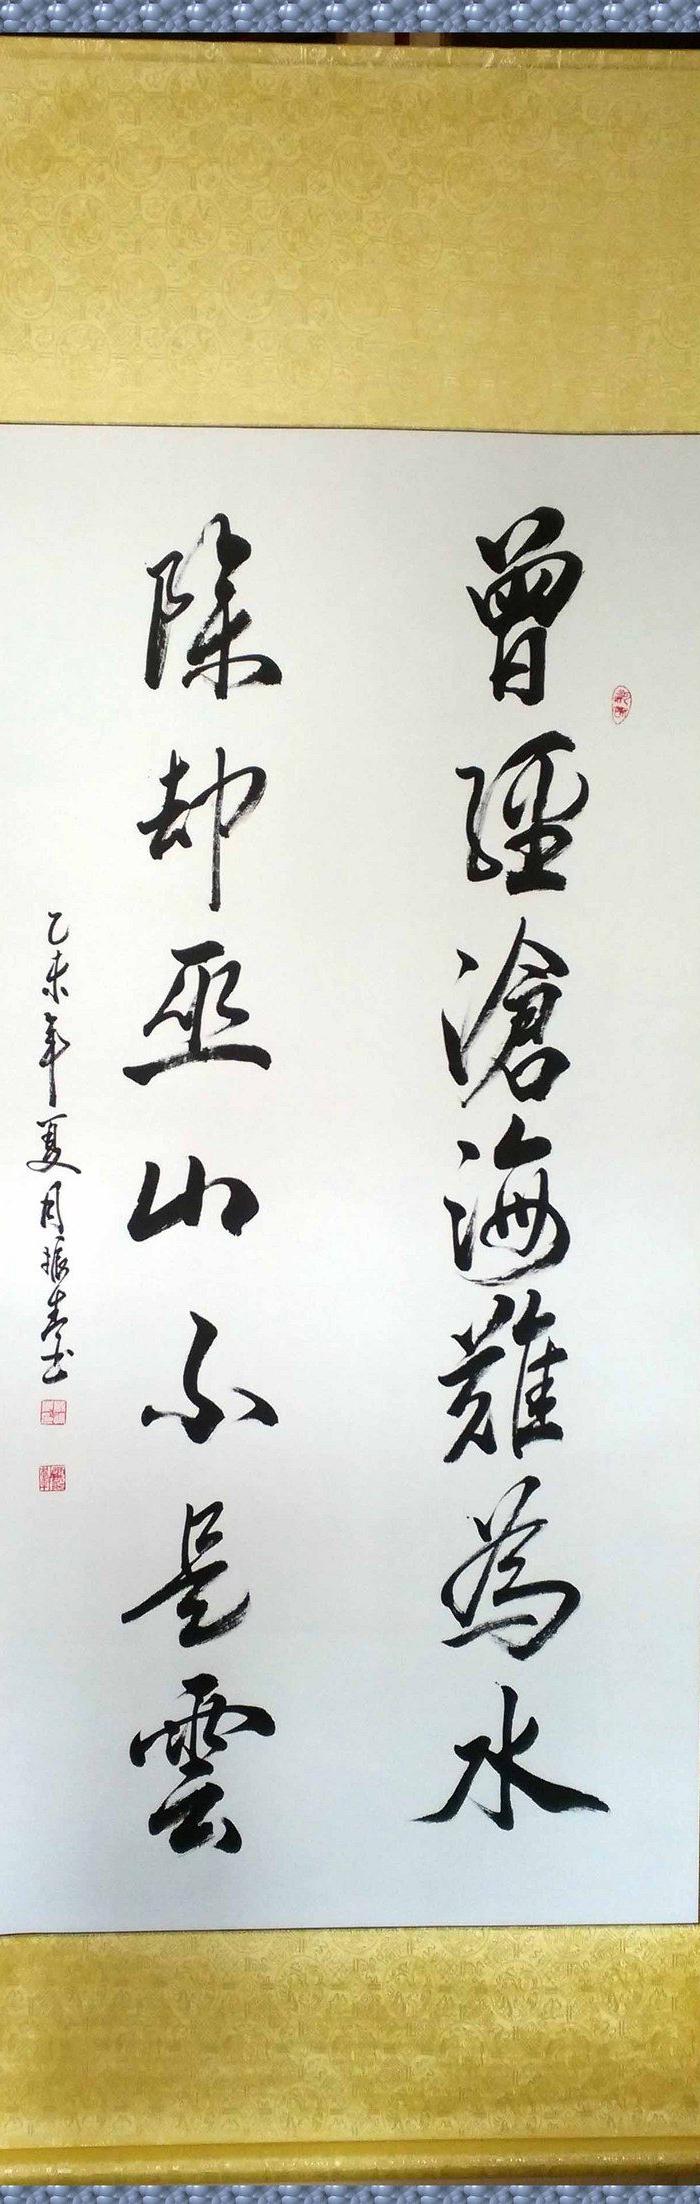 曾經滄海難為水
除却巫山不是雲
乙未年夏月振春书